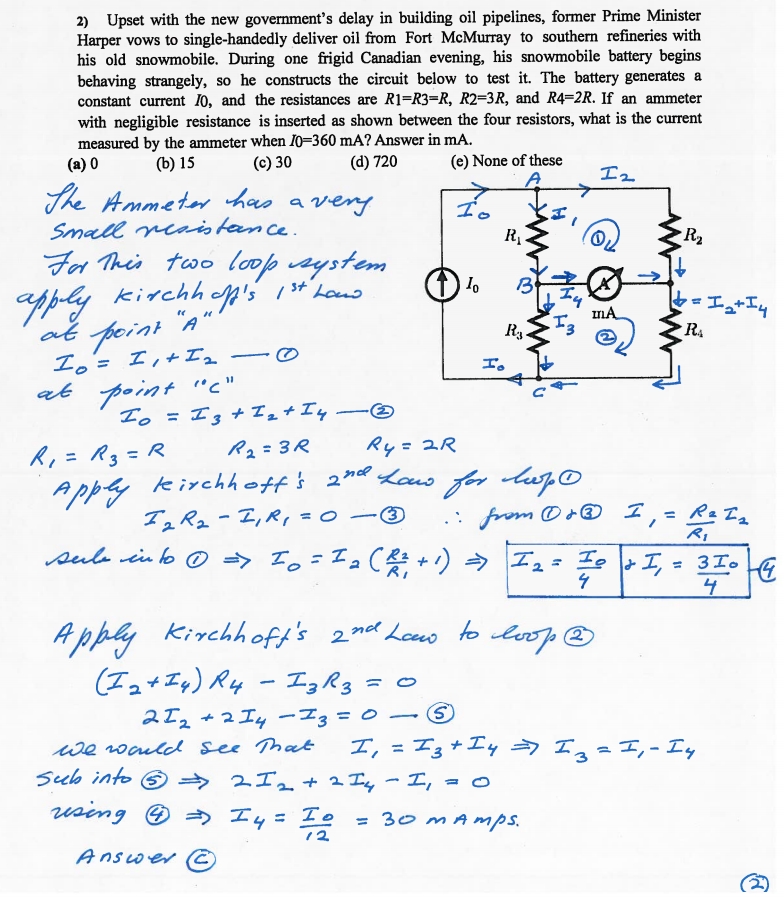 2) Upset with the new government's delay in building oil pipelines, former Prime Minister
Harper vows to single-handedly deliver oil from Fort McMurray to southern refineries with
his old snowmobile. During one frigid Canadian evening, his snowmobile battery begins
behaving strangely, so he constructs the circuit below to test it. The battery generates a
constant current I0, and the resistances are R1=R3=R, R2=3R, and R4=2R. If an ammeter
with negligible resistance is inserted as shown between the four resistors, what is the current
measured by the ammeter when I0=360 mA? Answer in mA.
(a) 0 (b) 15 (c) 30 (d) 720 (e) None of these
A I₂
I₀ I₁ ①
R₁ R₂
I₀ B I₄ A mA = I₂+I₄
R₃ I₃ ② R₄
I₀ C
The Ammeter has a very
small resistance.
For This two loop system
apply Kirchhoff's 1st Law
at point "A"
I₀ = I₁ + I₂ — ①
at point "C"
I₀ = I₃ + I₂ + I₄ — ②
R₁ = R₃ = R R₂ = 3R R₄ = 2R
Apply Kirchhoff's 2nd Law for loop ①
I₂R₂ - I₁R₁ = 0 — ③ ∴ from ① & ③ I₁ = R₂/R₁ I₂
sub into ① ⇒ I₀ = I₂ (R₂/R₁ + 1) ⇒ I₂ = I₀/4 & I₁ = 3I₀/4 ④
Apply Kirchhoff's 2nd Law to loop ②
(I₂+I₄) R₄ - I₃R₃ = 0
2I₂ + 2I₄ - I₃ = 0 — ⑤
we would see That I₁ = I₃ + I₄ ⇒ I₃ = I₁ - I₄
Sub into ⑤ ⇒ 2I₂ + 2I₄ - I₁ = 0
using ④ ⇒ I₄ = I₀/12 = 30 mAmps.
Answer Ⓒ
②